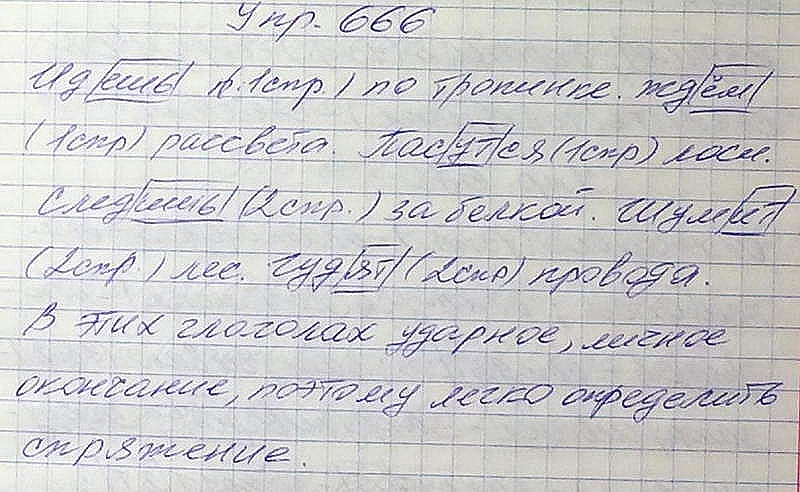 Упр. 666
Идёшь (1спр.) по тропинке. Ждём
(1спр) рассвета. Пасутся (1спр) лоси.
Следишь (2спр.) за белкой. Шумит
(2спр.) лес. Гудят (2спр) провода.
В этих глоголах ударное, личное
окончание, поэтому легко определить
спряжение.